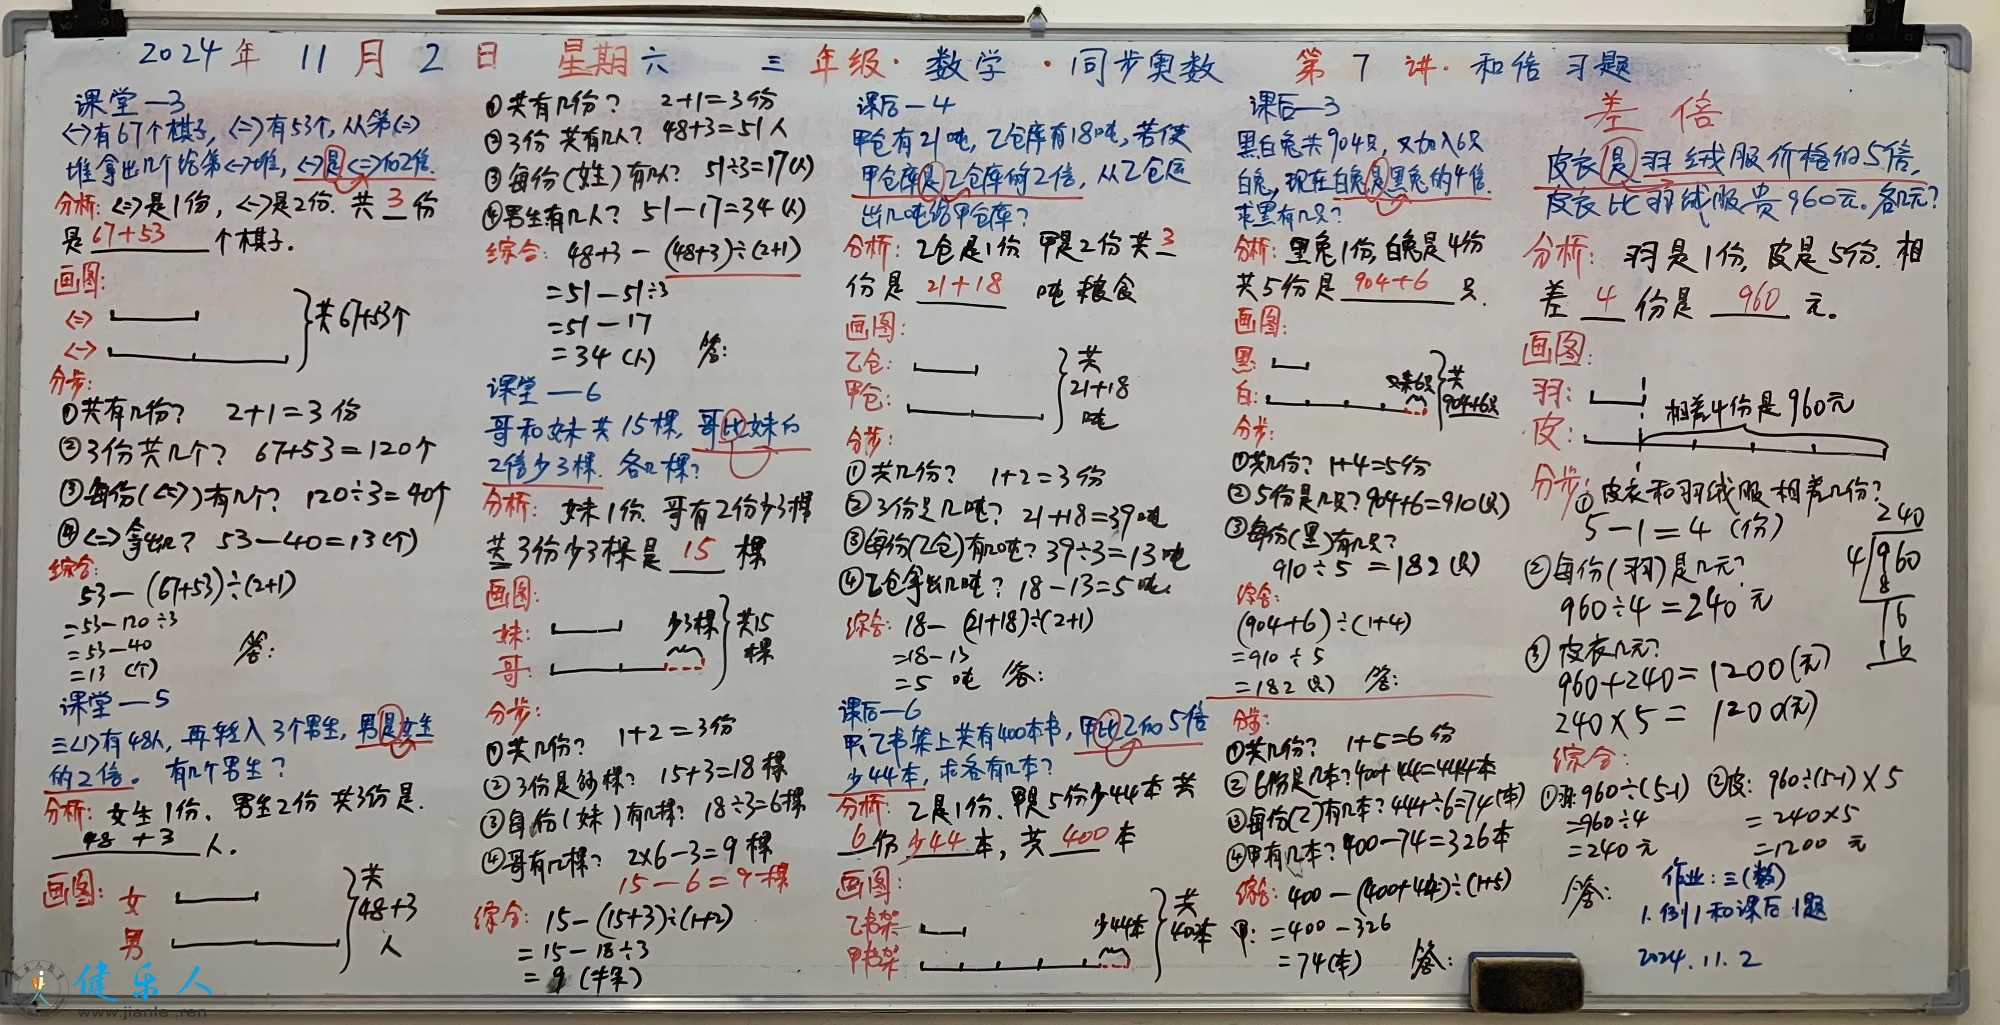 2024年 11月 2日 星期六 三年级·数学·同步奥数 第7讲·和倍习题
课堂—3
<一>有67个棋子,<二>有53个,从第<二>
堆拿出几个给第<一>堆,<一>是<二>的2倍.
分析:<二>是1份,<一>是2份.共3份
是67+53个棋子.
画图:
<二>
<一>
共67+53个
分步:
①共有几份? 2+1=3份
②3份共几个? 67+53=120个
③每份(<二>)有几个? 120÷3=40个
④<二>拿出几? 53-40=13(个)
综合:
53-(67+53)÷(2+1)
=53-120÷3
=53-40
=13(个) 答:
课堂—5
三<1>有48人,再转入3个男生,男是女生
的2倍。有几个男生?
分析:女生1份.男生2份 共3份是.
48+3人.
画图:
女
男
共
48+3
人
①共有几份? 2+1=3份
②3份共有几人? 48+3=51人
③每份(女生)有几人? 51÷3=17(人)
④男生有几人? 51-17=34(人)
综合: 48+3-(48+3)÷(2+1)
=51-51÷3
=51-17
=34(人) 答:
课堂—6
哥和妹共15棵,哥比妹的
2倍少3棵.各几棵?
分析: 妹1份.哥有2份少3棵
共3份少3棵是15棵
画图:
妹:
哥:
少3棵
共15
棵
分步:
①共几份? 1+2=3份
②3份是多少棵? 15+3=18棵
③每份(妹)有几棵? 18÷3=6棵
④哥有几棵? 2×6-3=9棵
15-6=9棵
综合: 15-(15+3)÷(1+2)
=15-18÷3
=9(棵)
课后—4
甲仓有21吨,乙仓库有18吨,若使
甲仓库是乙仓库的2倍,从乙仓运
出几吨给甲仓库?
分析:乙仓是1份 甲是2份 共3
份是21+18吨粮食
画图:
乙仓:
甲仓:
共
21+18
吨
分步:
①共几份? 1+2=3份
②3份是几吨? 21+18=39吨
③每份(乙仓)有几吨? 39÷3=13吨
④乙仓拿出几吨? 18-13=5吨.
综合: 18-(21+18)÷(2+1)
=18-13
=5吨 答:
课后—6
甲、乙书架上共有400本书,甲比乙的5倍
少44本,求各有几本?
分析:乙是1份.甲是5份少44本 共
6份少44本,共400本
画图:
乙书架
甲书架
少44本
共
400本
课后—3
黑白兔共904只,又加入6只
白兔,现在白兔是黑兔的4倍.
求黑有几只?
分析:黑兔1份,白兔是4份
共5份是904+6只.
画图:
黑:
白:
又来6只
共
904+6只
分步:
①共几份? 1+4=5份
②5份是几只? 904+6=910(只)
③每份(黑)有几只?
910÷5=182(只)
综合:
(904+6)÷(1+4)
=910÷5
=182(只) 答:
分步:
①共几份? 1+5=6份
②6份是几本? 400+44=444本
③每份(乙)有几本? 444÷6=74(本)
④甲有几本? 400-74=326本
综合: 400-(400+44)÷(1+5)
甲: =400-326
=74(本) 答:
差倍
皮衣是羽绒服价格的5倍,
皮衣比羽绒服贵960元.各几元?
分析: 羽是1份,皮是5份.相
差4份是960元.
画图:
羽:
皮:
相差4份是960元
分步:
①皮衣和羽绒服相差几份?
5-1=4(份)
②每份(羽)是几元?
960÷4=240元
③皮衣几元?
960+240=1200(元)
240×5=1200(元)
240
4 960
8
16
16
综合:
①羽:960÷(5-1) ②皮:960÷(5-1)×5
=960÷4 =240×5
=240元 =1200元
答:
作业:三(数)
1.例1和课后1题
2024.11.2
健乐人
www.jianle.ren